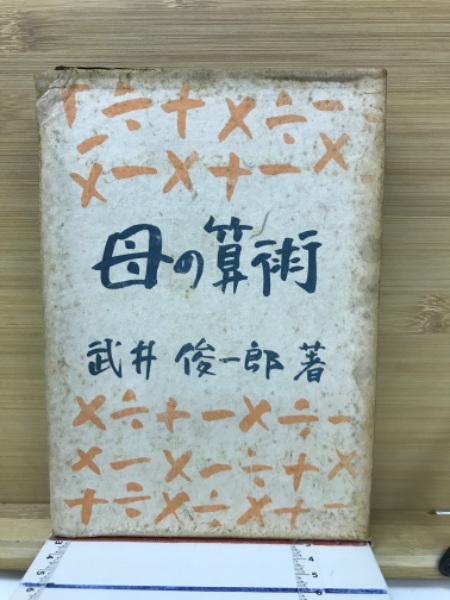 母の算術
武井俊一郎 著